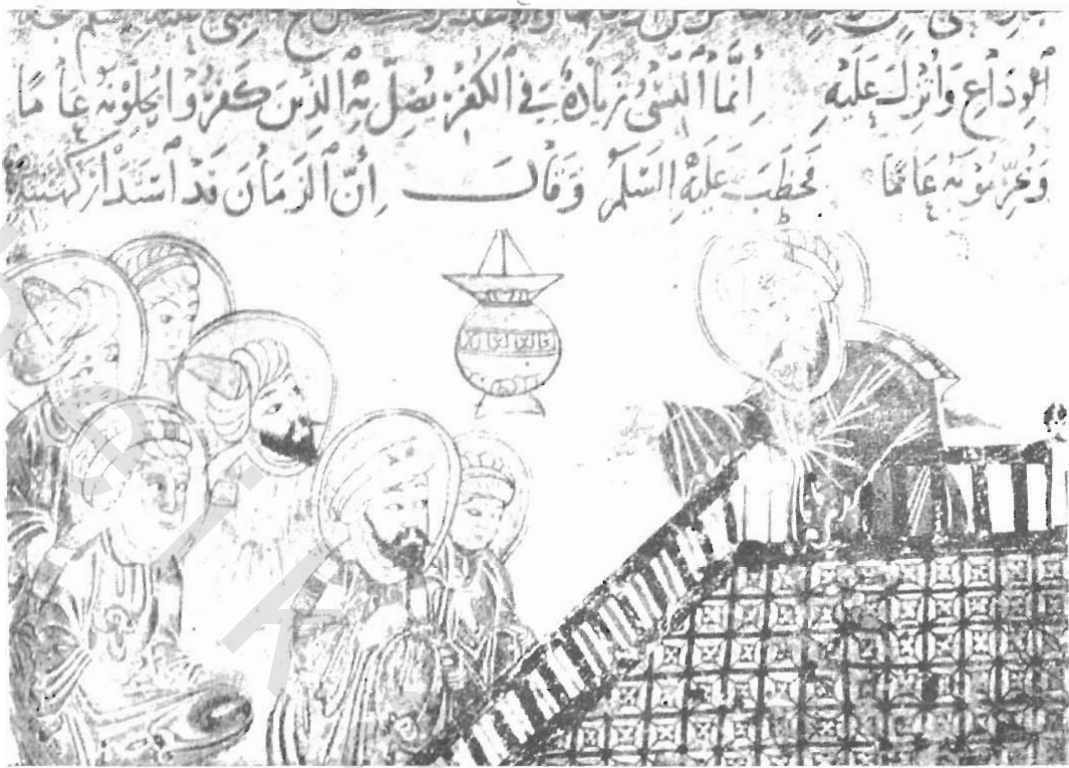 الوِدَاعِ وَأُنْزِلَ عَلَيْهِ إِنَّمَا النَّسِيُ زِيَادَةٌ فِي الكُفْرِ يُضَلُّ بِهِ الَّذِينَ كَفَرُوا يُحِلُّونَهُ عَامًا
وَيُحَرِّمُونَهُ عَامًا فَخَطَبَ عَلَيْهِ السَّلمُ وَقَالَ إِنَّ الزَّمَانَ قَدِ اسْتَدَارَ كَهَيْئَتِهِ